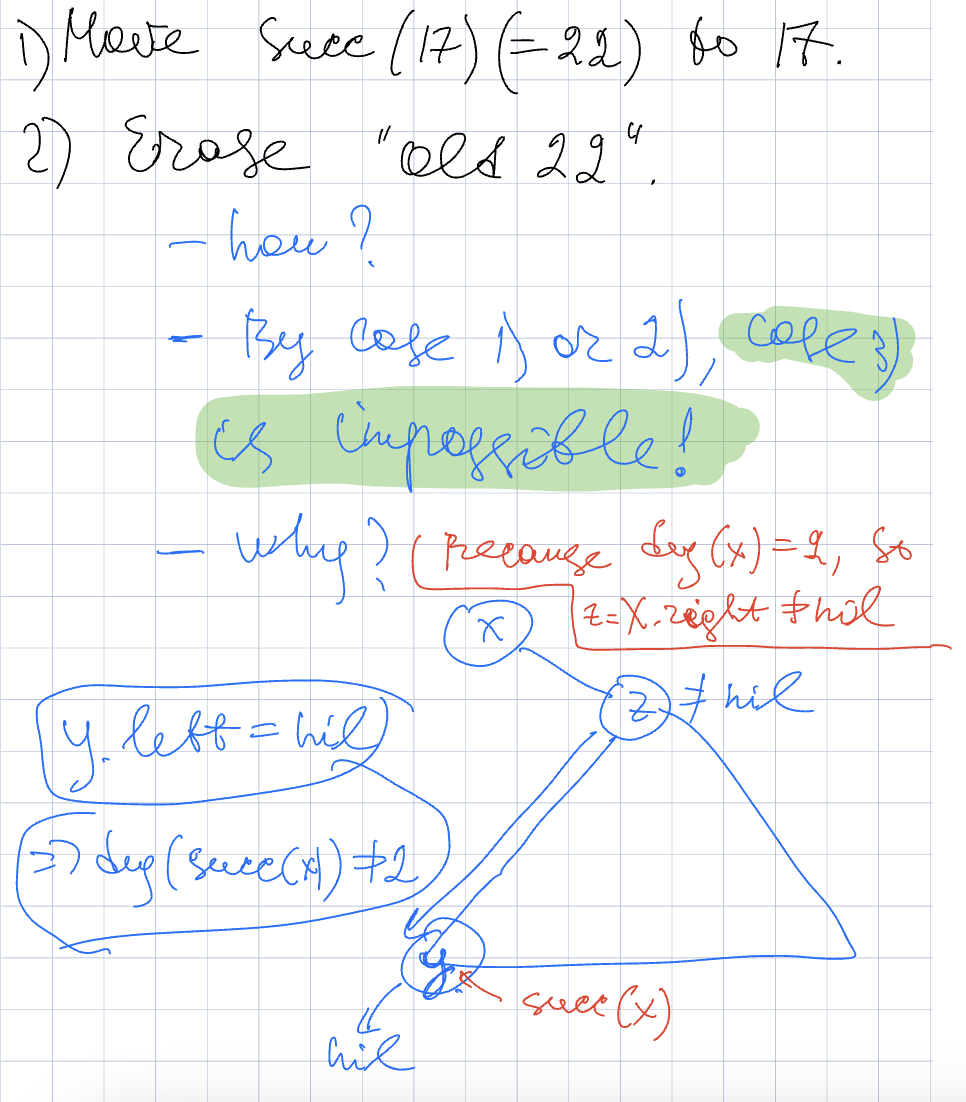 1) Move Succ(17)(=22) to 17.
2) Erase "old 22".
- how?
- By case 1) or 2), case 3)
is impossible!
- why? (Because deg(x)=2, so
z=x.right ≠ nil
x
z ≠ nil
y.left = nil
=> deg(succ(x)) ≠ 2
y
succ(x)
nil